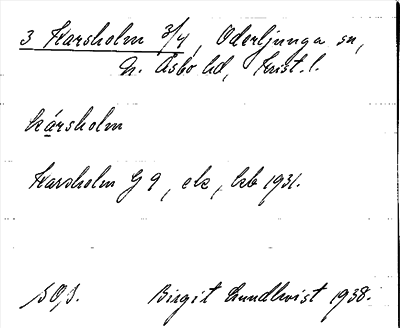 3 Karsholm 3/4, Oderljunga sn,
N. Åsbo hd, Krist. l.
kársholm
Karsholm G 9, ek, kb 1931.
SOJ. Birgit Lundkvist 1938.